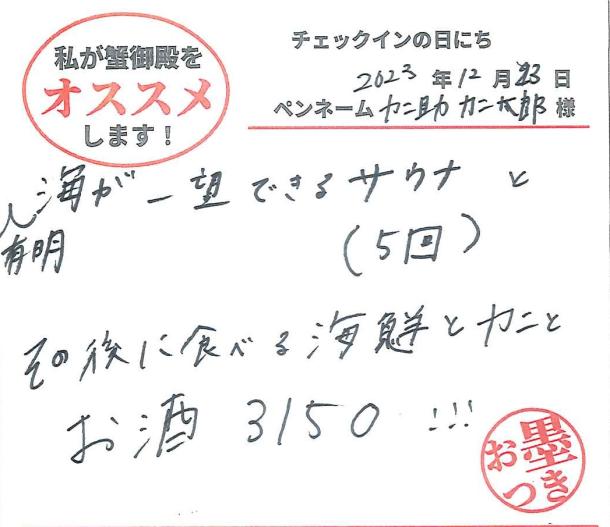 私が蟹御殿を
オススメ
します！
チェックインの日にち
2023 年 12 月 23 日
ペンネーム カニ助 カニ太郎 様
有明海が一望できるサウナと
(5回)
その後に食べる海鮮とカニと
お酒 3150 !!!
お墨つき